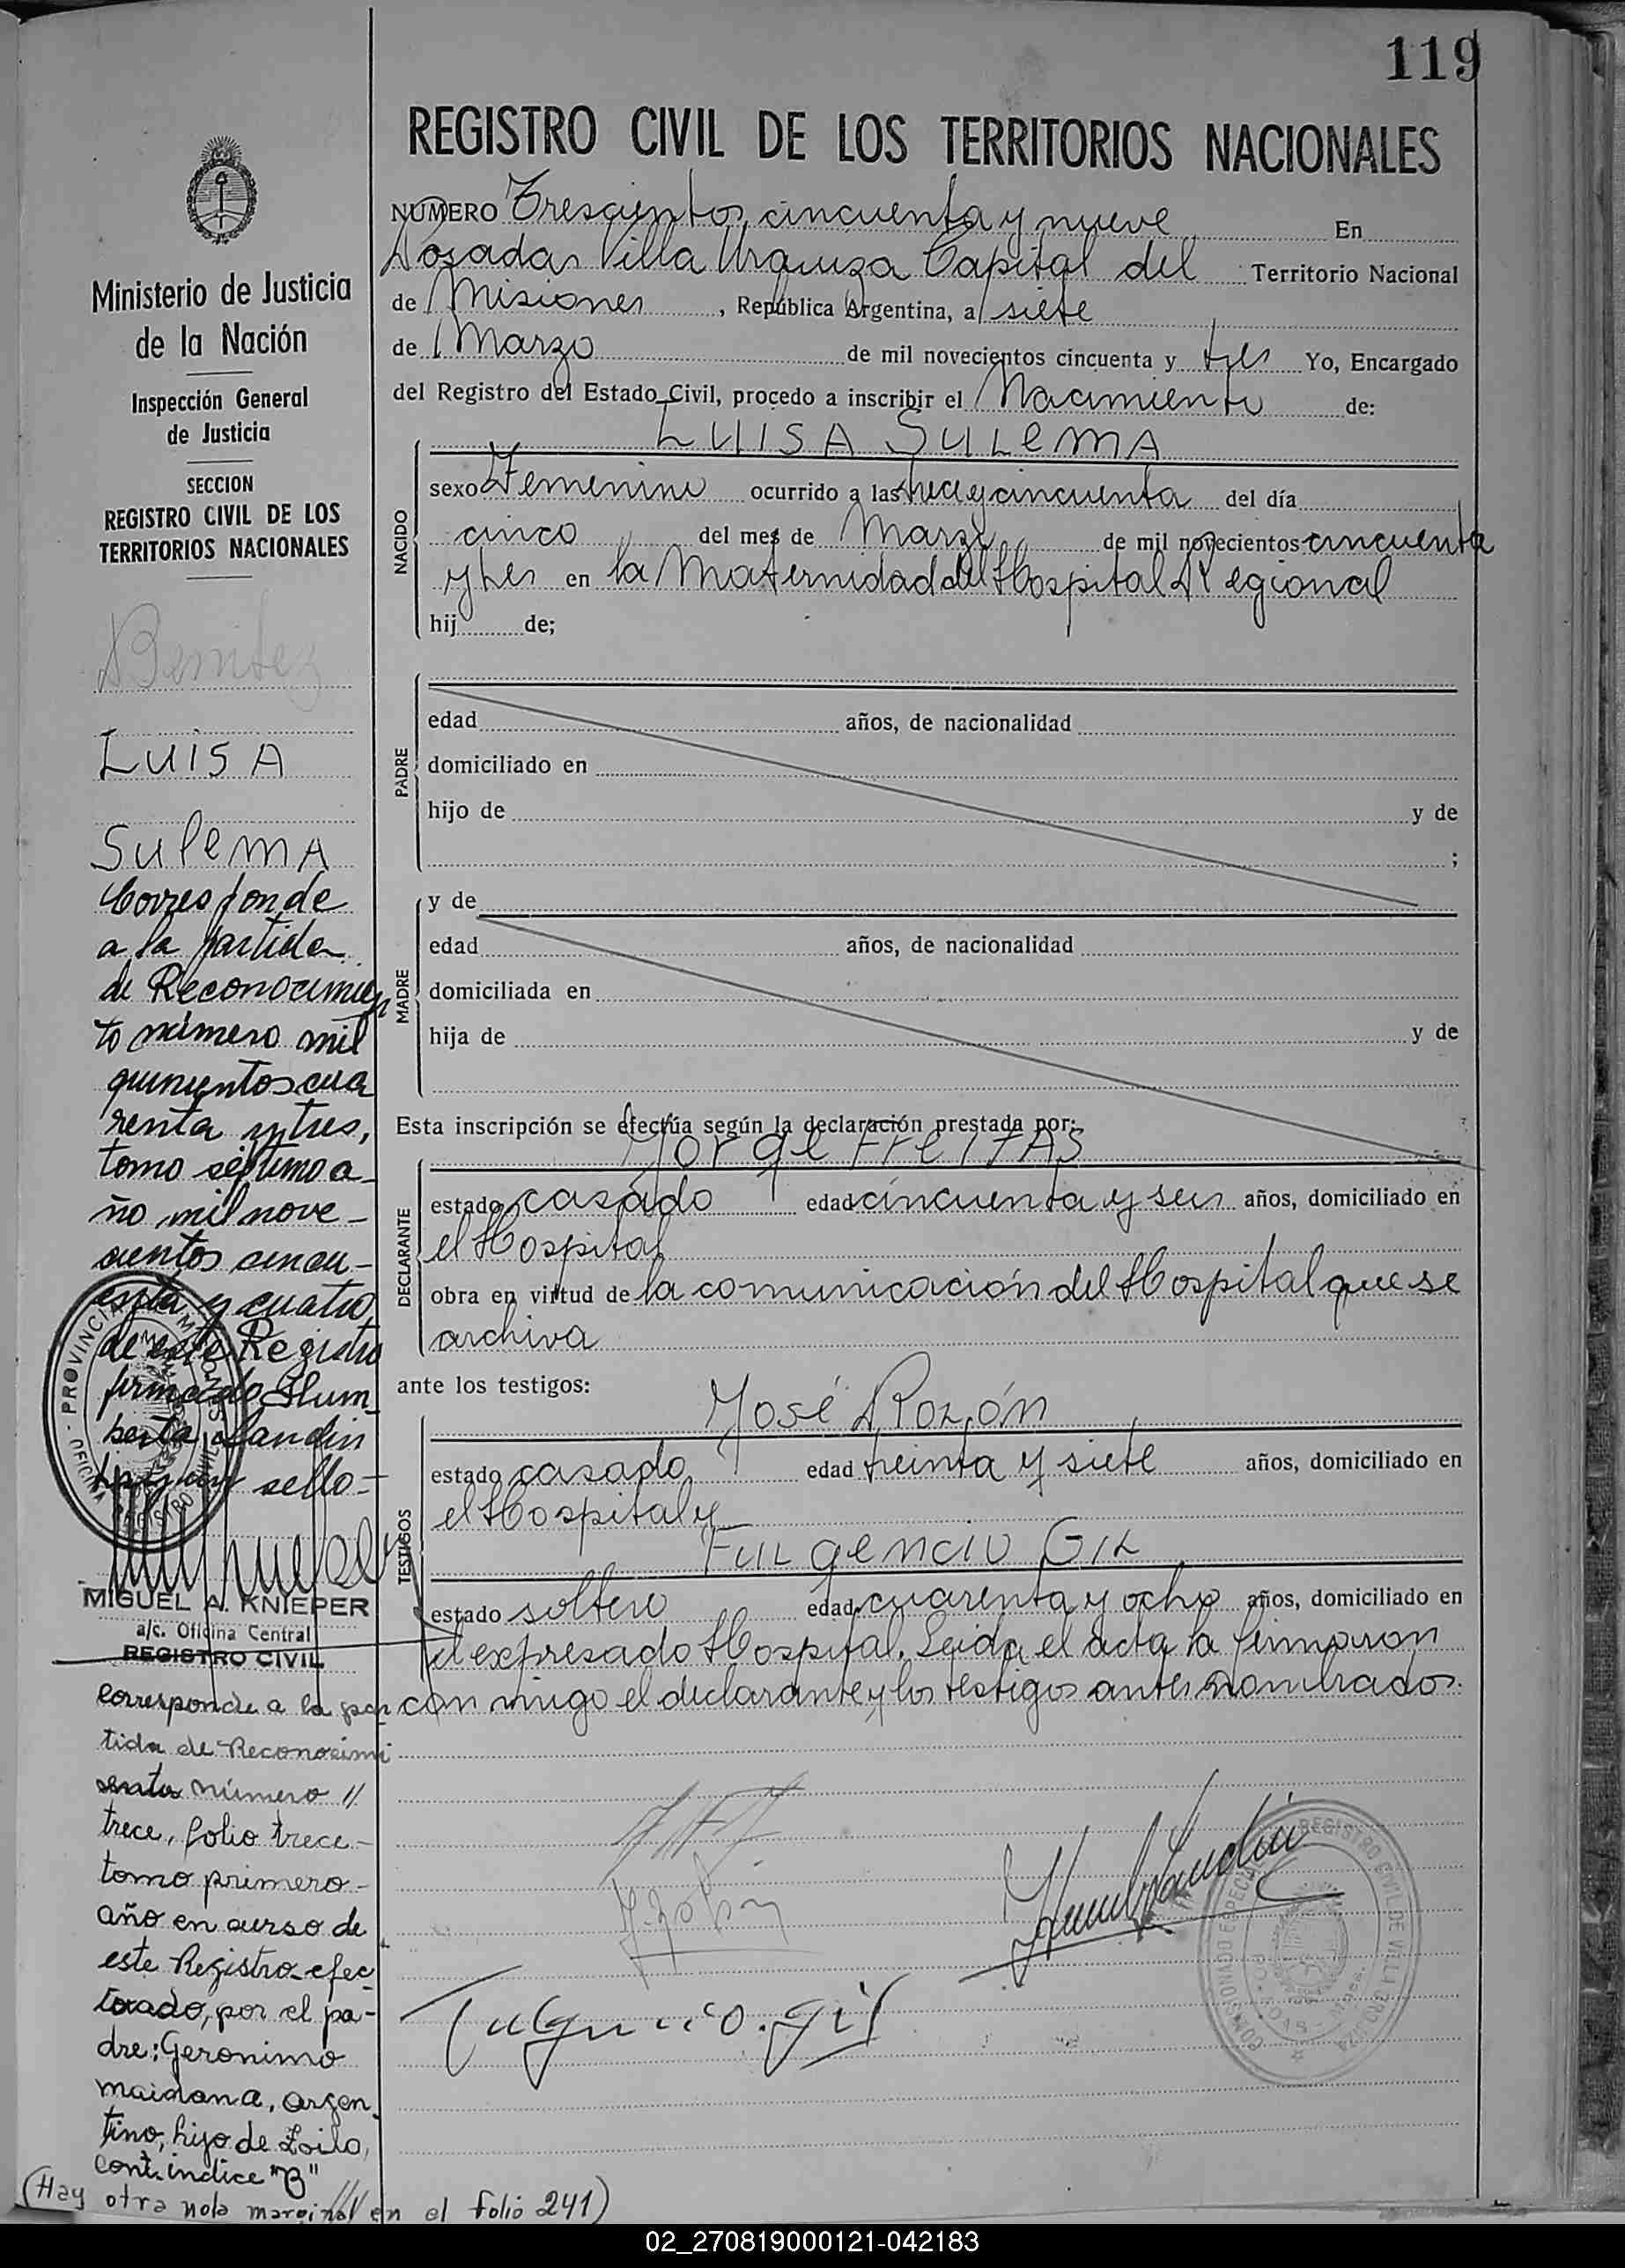 119
REGISTRO CIVIL DE LOS TERRITORIOS NACIONALES
NUMERO Trescientos cincuenta y nueve En
Posadas Villa Urquiza Capital del Territorio Nacional
de Misiones, República Argentina, a siete
de Marzo de mil novecientos cincuenta y tres Yo, Encargado
del Registro del Estado Civil, procedo a inscribir el Nacimiento de:
LUISA SULEMA
NACIDO
sexo Femenino ocurrido a las trece y cincuenta del día
cinco del mes de Marzo de mil novecientos cincuenta
y tres en la Maternidad del Hospital Regional
hij de;
PADRE
edad años, de nacionalidad
domiciliado en
hijo de y de
;
MADRE
y de
edad años, de nacionalidad
domiciliada en
hija de y de
Esta inscripción se efectúa según la declaración prestada por:
Jorge FreitAS
DECLARANTE
estado casado edad cincuenta y seis años, domiciliado en
el Hospital
obra en virtud de la comunicación del Hospital que se
archiva
ante los testigos:
José Rozón
TESTIGOS
estado casado edad treinta y siete años, domiciliado en
el Hospital y
FULgencio GIL
estado soltero edad cuarenta y ocho años, domiciliado en
el expresado Hospital. Leida el acta la firmaron
con migo el declarante y los testigos antes nombrados.
Fulgencio. Gil
COMISIONADO ESPECIAL REGISTRO CIVIL DE VILLA URQUIZA
POSADAS - Mnes.
Ministerio de Justicia
de la Nación
Inspección General
de Justicia
SECCION
REGISTRO CIVIL DE LOS
TERRITORIOS NACIONALES
Benitez
LUISA
SULEMA
Corresponde
a la partida
de Reconocimien
to número mil
quinientos cua
renta y tres,
tomo séptimo a-
ño mil nove-
cientos cincu-
enta y cuatro
de este Registro
firmado Hum-
berto Landin
hay un sello-
PROVINCIA MISIONES
OFICINA REGISTRO CIVIL
MIGUEL A. KNIEPER
a/c. Oficina Central
REGISTRO CIVIL
Corresponde a la par
tida de Reconocimi
ento número //
trece, folio trece-
tomo primero-
año en curso de
este Registro-efec
tuado, por el pa-
dre: Geronimo
maidana, argen-
tino, hijo de Zoilo,
Cont. indice "B"
(Hay otra nota marginal en el folio 241)
02_270819000121-042183